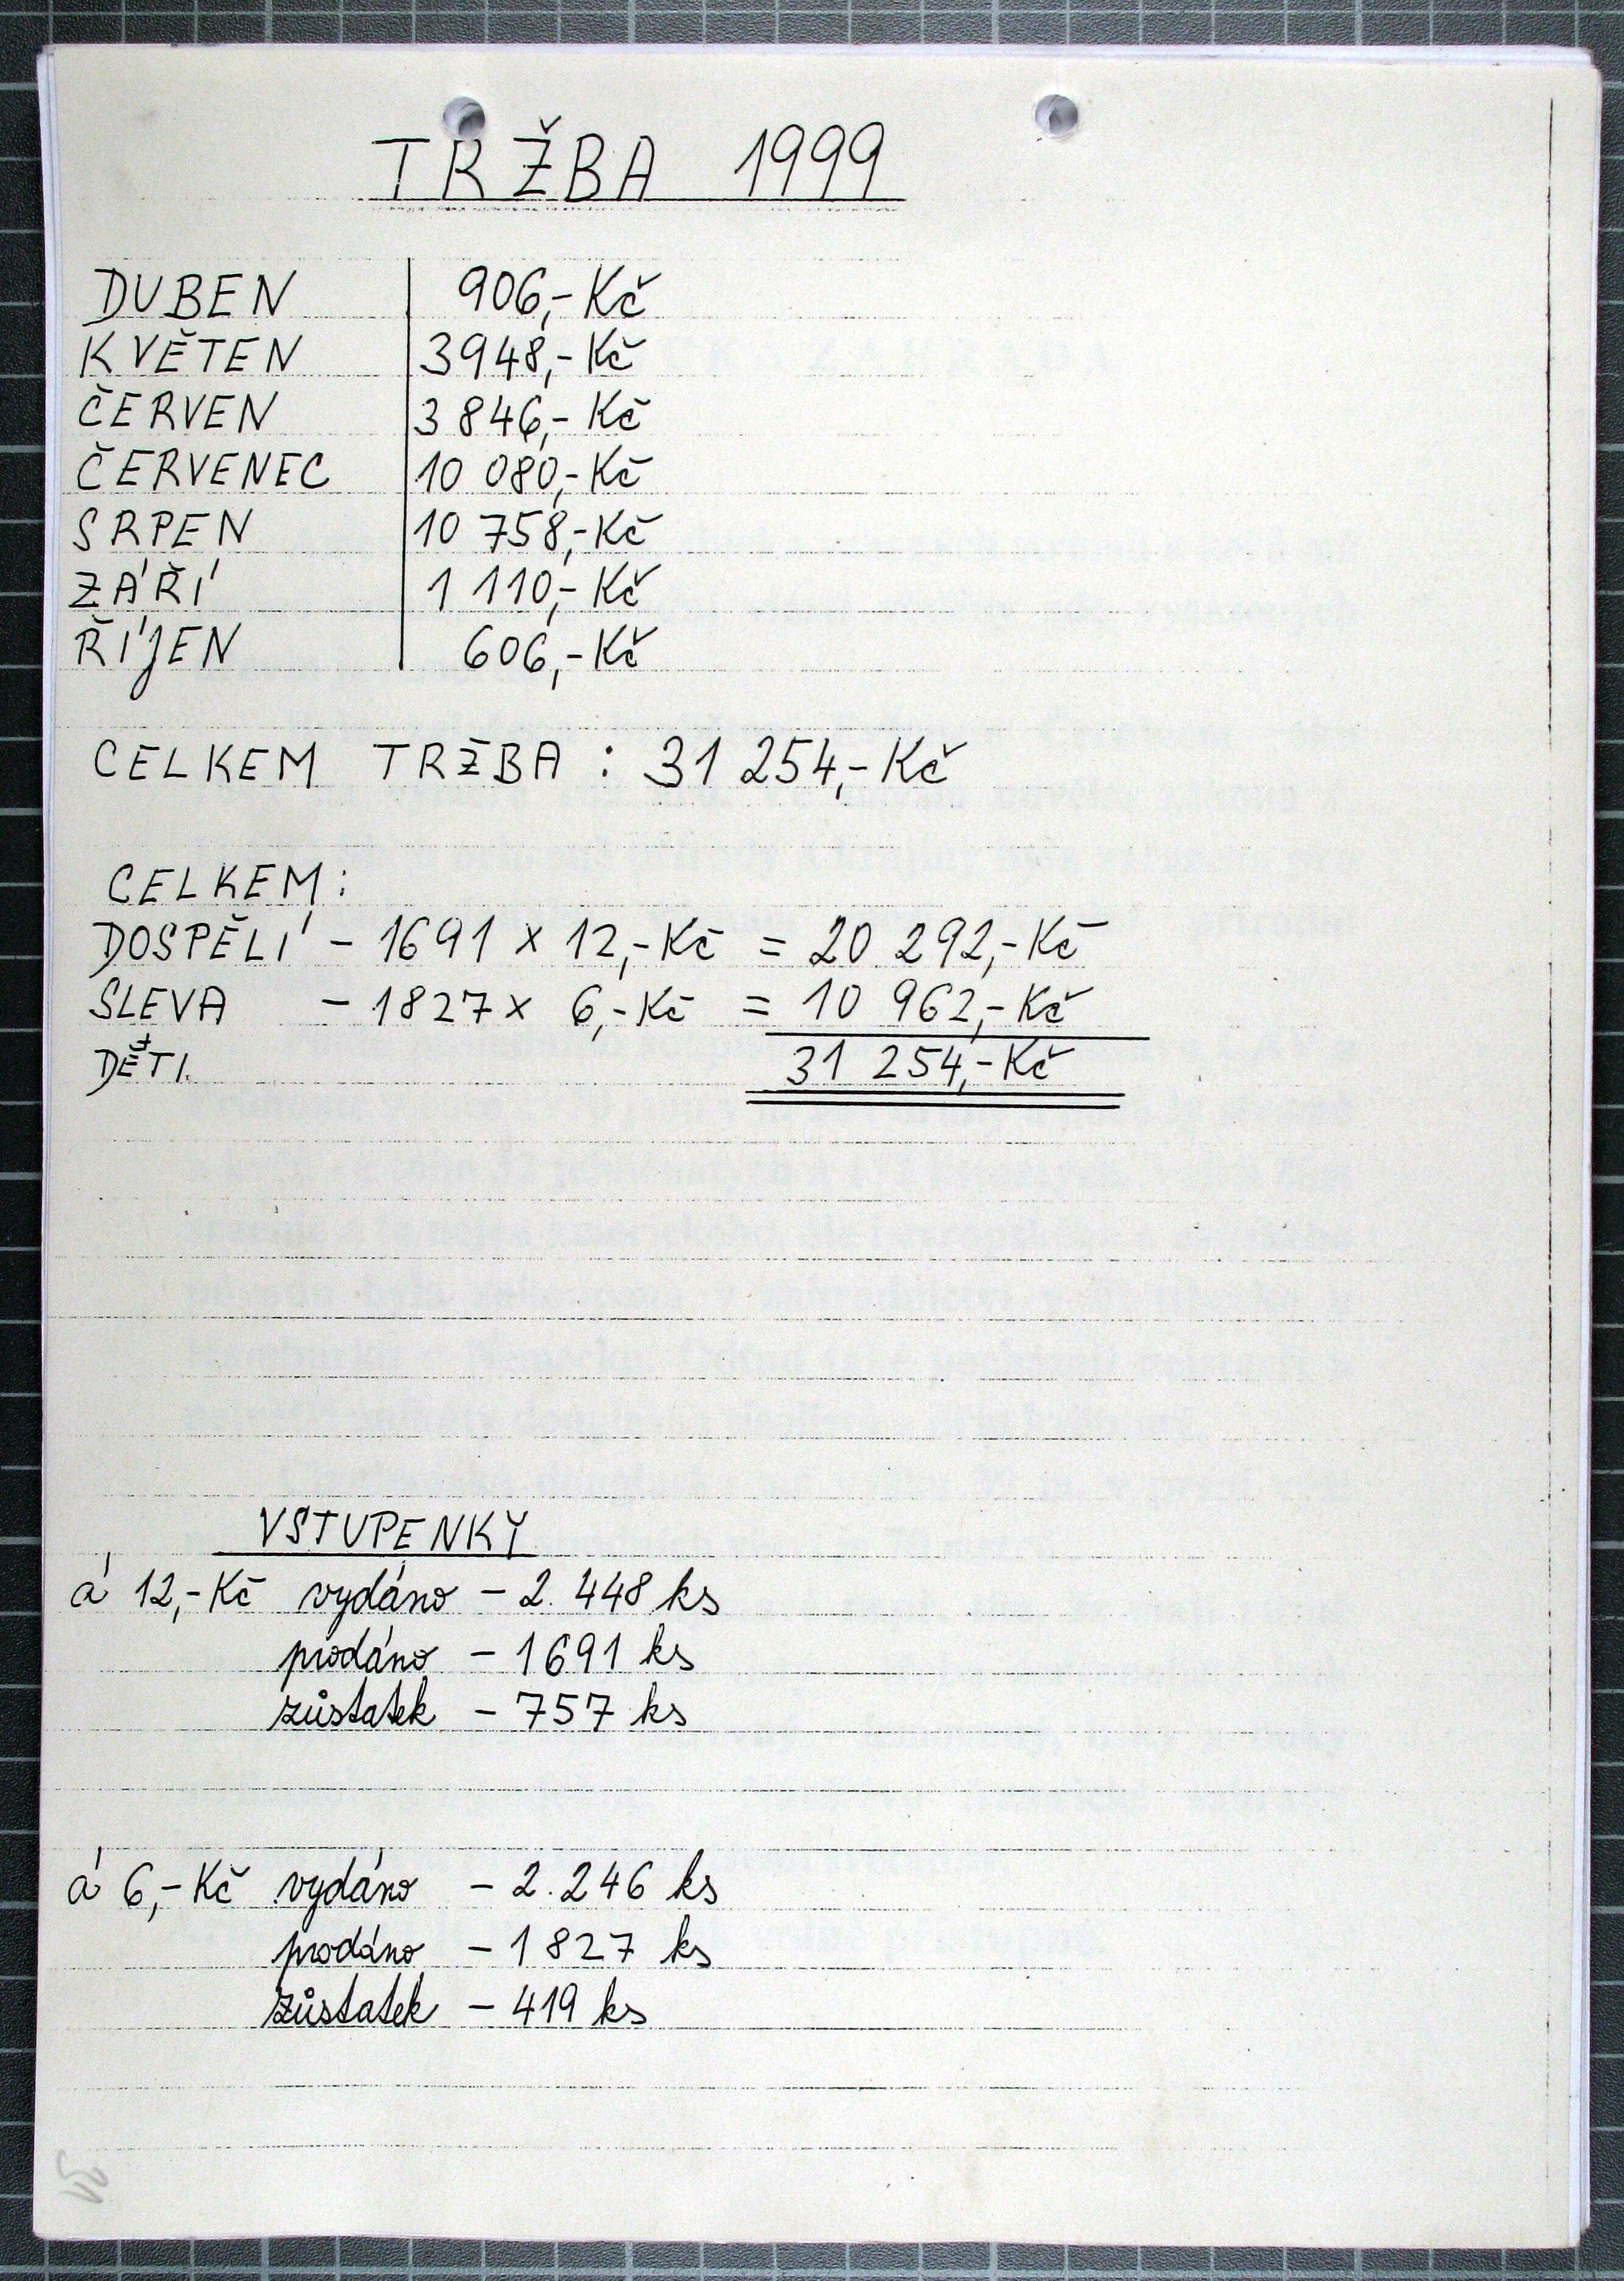 TRŽBA 1999
DUBEN 906,- Kč
KVĚTEN 3948,- Kč
ČERVEN 3 846,- Kč
ČERVENEC 10 080,- Kč
SRPEN 10 758,- Kč
ZÁŘÍ 1 110,- Kč
ŘÍJEN 606,- Kč
CELKEM TRŽBA : 31 254,- Kč
CELKEM:
DOSPĚLÍ - 1691 x 12,- Kč = 20 292,- Kč
SLEVA - 1827 x 6,- Kč = 10 962,- Kč
+
DĚTI. 31 254,- Kč
VSTUPENKY
á 12,- Kč vydáno - 2.448 ks
prodáno - 1691 ks
zůstatek - 757 ks
á 6,- Kč vydáno - 2.246 ks
prodáno - 1827 ks
zůstatek - 419 ks